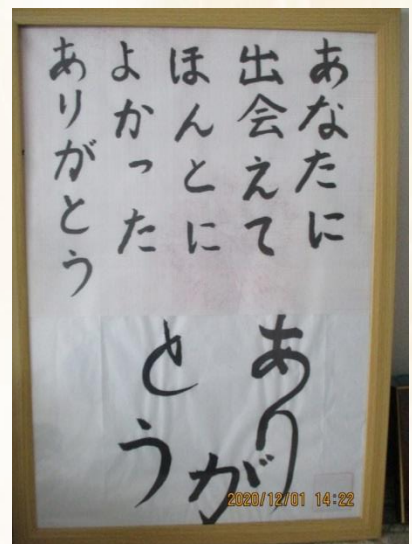 あなたに
出会えて
ほんとに
よかった
ありがとう
あり
がとう
2020/12/01 14:22